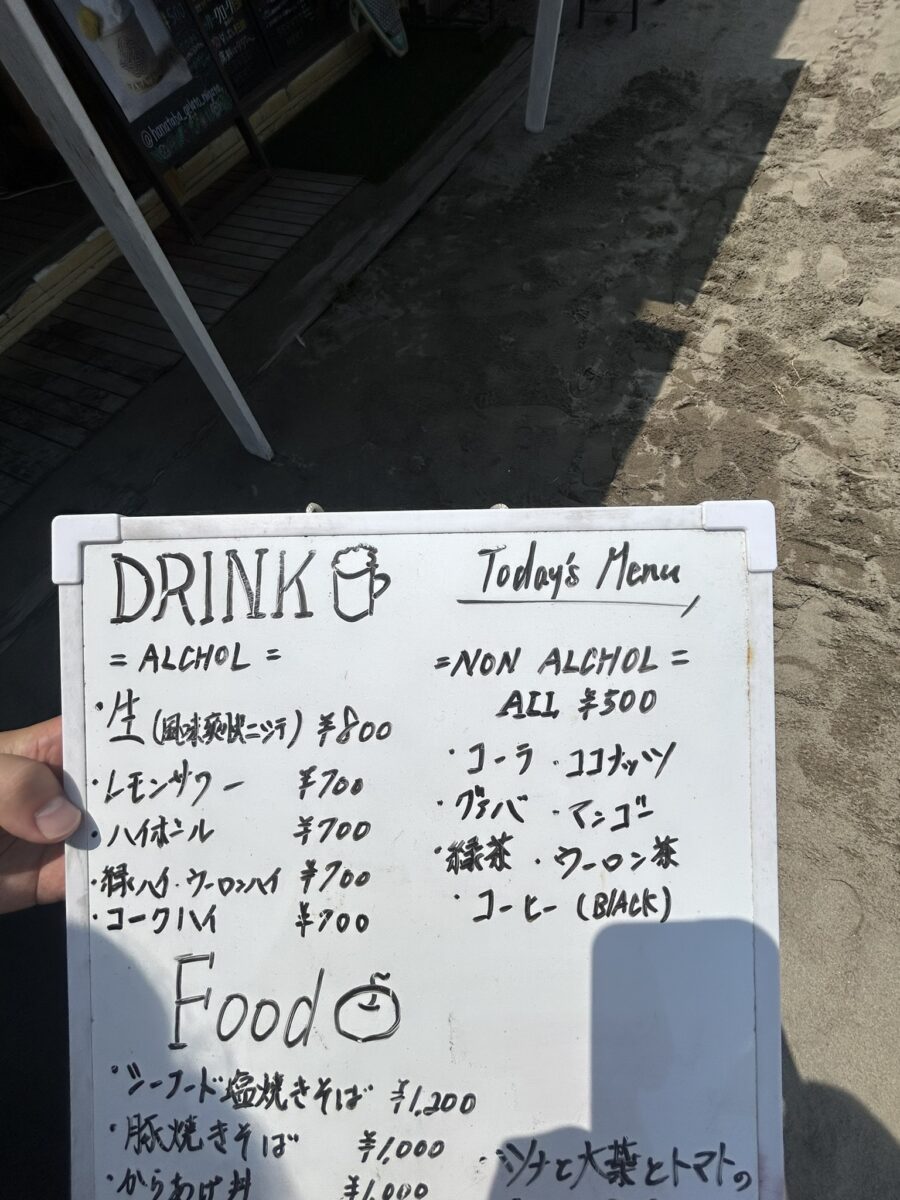 @hanataba_gelato_miyano
DRINK
Today's Menu
= ALCHOL =
・生(風味爽快ニシテ) ¥800
・レモンサワー ¥700
・ハイボール ¥700
・緑ハイ・ウーロンハイ ¥700
・コークハイ ¥700
=NON ALCHOL=
ALL ¥500
・コーラ ・ココナッツ
・グァバ ・マンゴー
・緑茶 ・ウーロン茶
・コーヒー (BLACK)
Food
・シーフード塩焼きそば ¥1,200
・豚焼きそば ¥1,000
・からあげ丼 ¥1,000
・ツナと大葉とトマトの